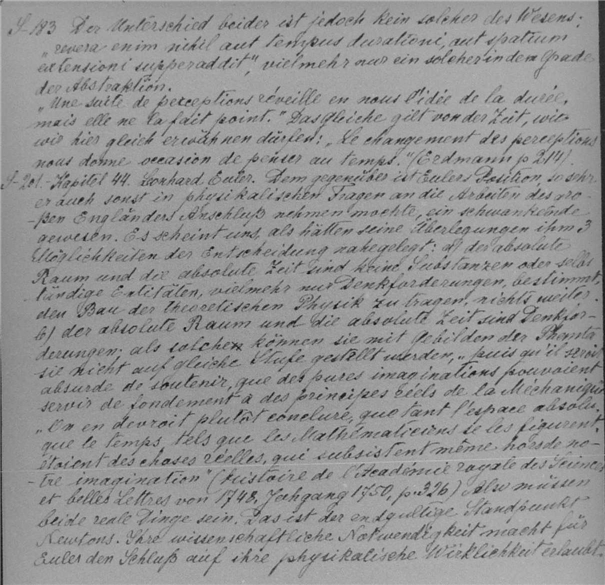 S. 183 Der Unterschied beider ist jedoch kein solcher des Wesens;
"revera enim nihil aut tempus durationi, aut spatium
extensioni superaddit", vielmehr nur ein solcher in dem Grade
der Abstraktion.
"Une suite de perceptions réveille en nous l'idée de la durée,
mais elle ne la fait point." Das gleiche gilt von der Zeit, wie
wir hier gleich erwähnen dürfen: "Le changement des perceptions
nous donne occasion de penser au temps." (Erdmann p 241).
S. 201. Kapitel 44. Leonhard Euler. Dem gegenüber ist Eulers Position, so sehr
er auch sonst in physikalischen Fragen an die Arbeiten des gro-
ßen Engländers Anschluß nehmen mochte, ein schwankende
gewesen. Es scheint uns, als hätten seine Überlegungen ihm 3
Möglichkeiten der Entscheidung nahegelegt: a) der absolute
Raum und die absolute Zeit sind keine Substanzen oder selb
ständige Entitäten, vielmehr nur Denkforderungen, bestimmt,
den Bau der theoretischen Physik zu tragen, nichts weiter.
b) der absolute Raum und die absolute Zeit sind Denkfor-
derungen, als solche können sie mit Gebilden der Phanta
sie nicht auf gleiche Stufe gestellt werden, "puis qu'il seroit
absurde de soutenir, que des pures imaginations pouvoient
servir de fondement à des principes réels de la Méchanique
"On en devroit plutôt conclure, que tant l'espace absolu,
que le temps, tels que les Mathématiciens se les figurent
étoient des choses réelles, qui subsistent même hors de no-
tre imagination" (histoire de l'Académie royale des Sciences
et belles Lettres von 1748, Jahrgang 1750, p. 326) Also müssen
beide reale Dinge sein. Das ist der endgültige Standpunkt
Newtons. Ihre wissenschaftliche Notwendigkeit macht für
Euler den Schluß auf ihre physikalische Wirklichkeit erlaubt.